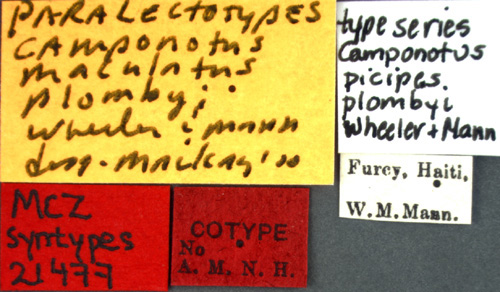 PARALECTOTYPES
camponotus
maculatus
plombyi
wheeler & mann
desg. mackay '00
type series
Camponotus
picipes.
plombyi
Wheeler + Mann
Furcy, Haiti,
W. M. Mann.
MCZ
syntypes
21477
COTYPE
No
A. M. N. H.